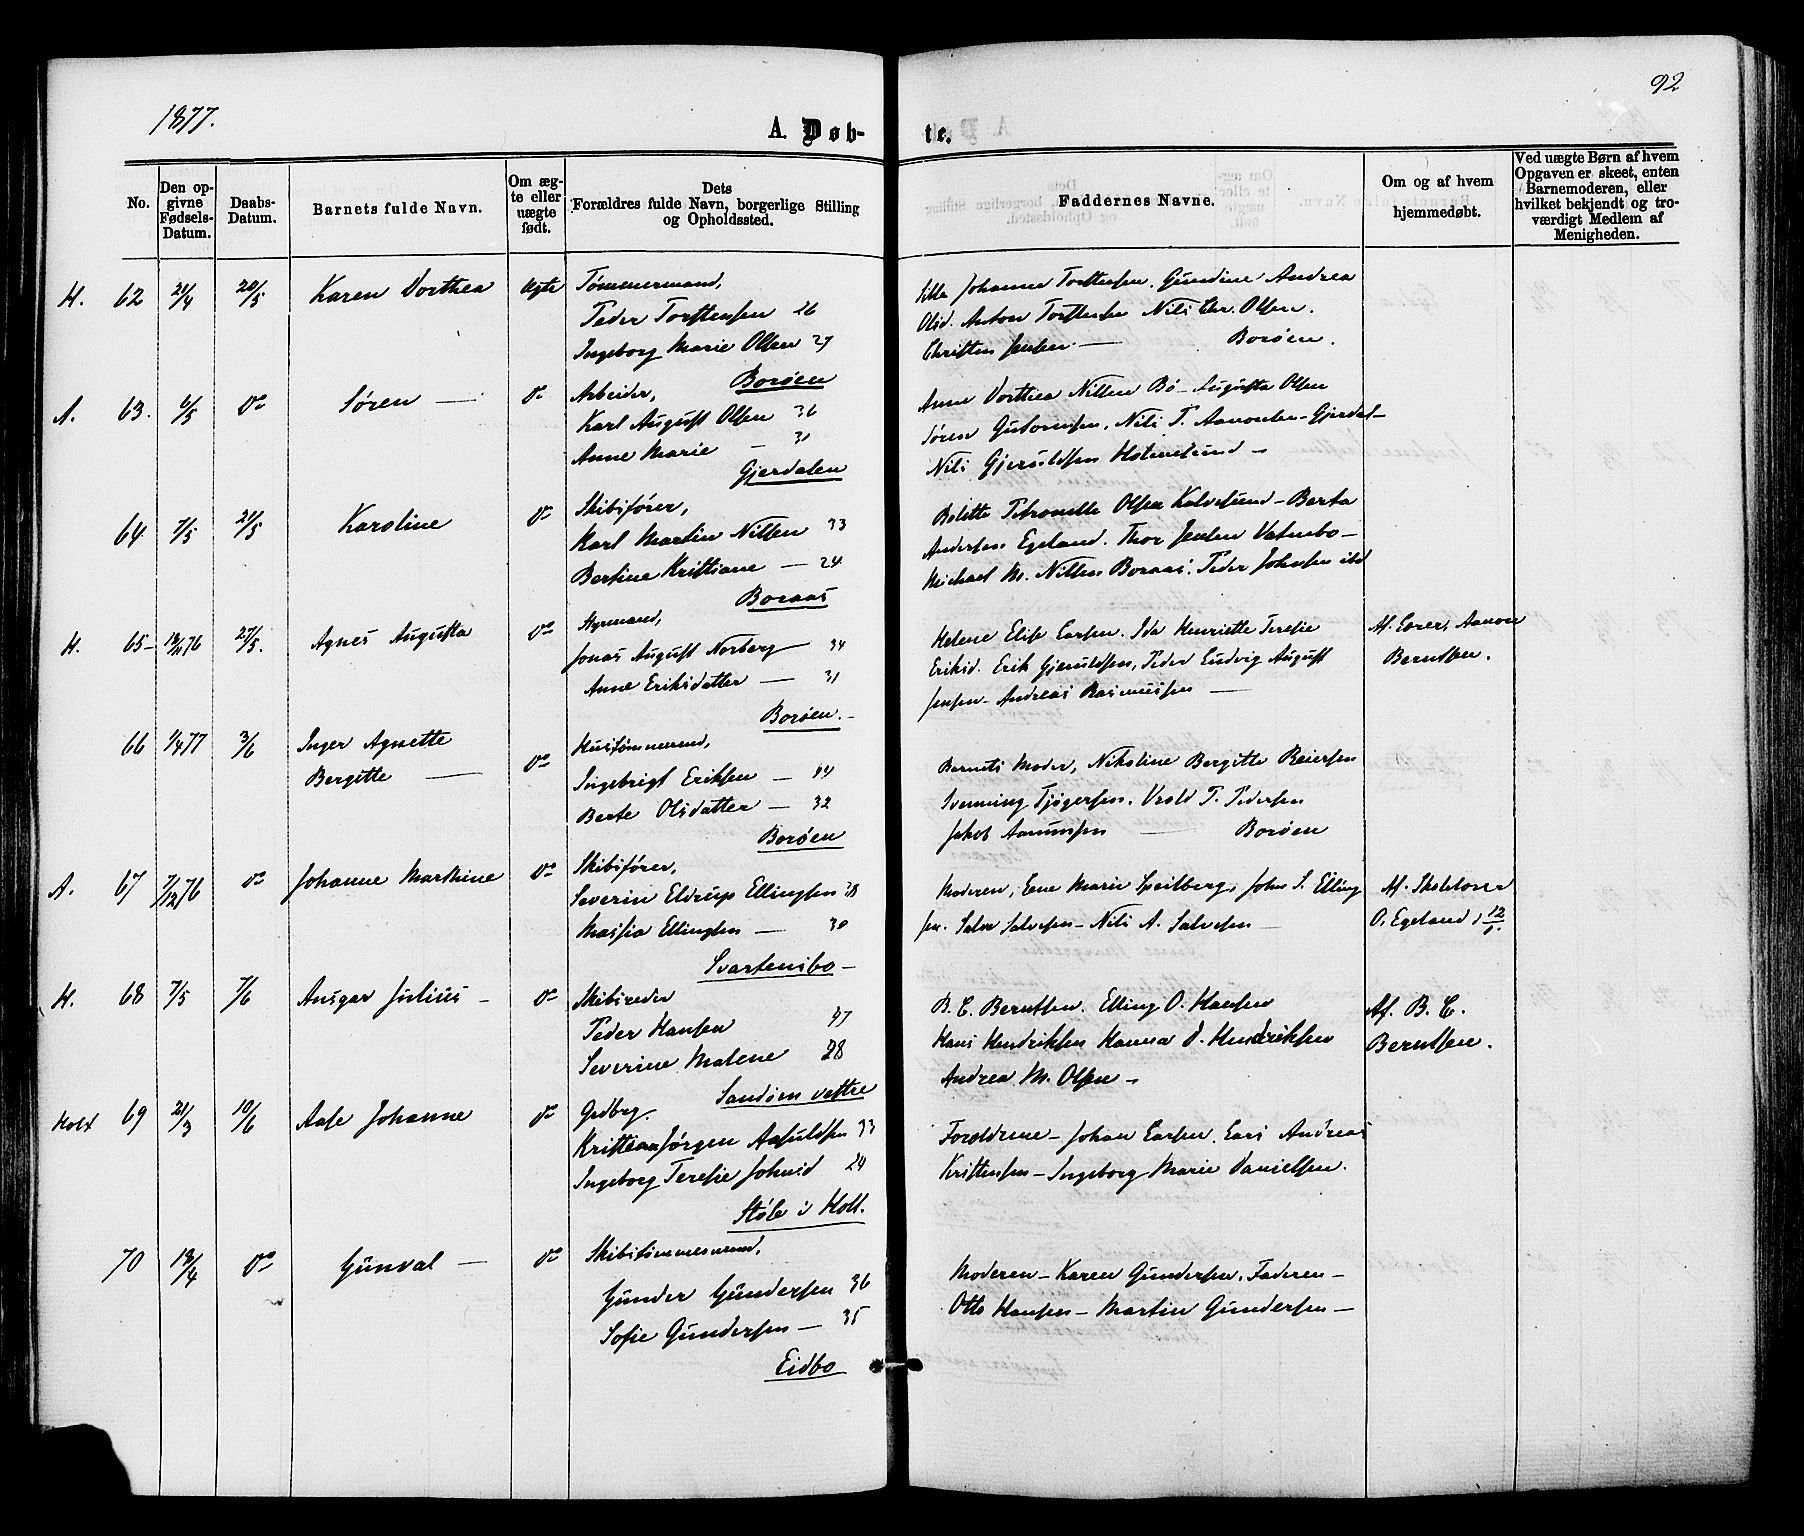 1877.
92
A. Døb-
te.
No.
Den op-
givne
Fødsels-
Datum.
Daabs-
Datum.
Barnets fulde Navn.
Om æg-
te eller
uægte
født.
Dets
Forældres fulde Navn, borgerlige Stilling
og Opholdssted.
Faddernes Navne.
Om og af hvem
hjemmedøbt.
Ved uægte Børn af hvem
Opgaven er skeet, enten
Barnemoderen, eller
hvilket bekjendt og tro-
værdigt Medlem af
Menigheden.
H. 62 21/4 20/5 Karen Dorthea Ægte Tømmermand,
Peder Torstensen 26
Ingeborg Marie Olsen 27
Borøen
Johanne Torstensen. Gundine Andrea
Olsd. Anton Torstensen Nils Chr. Olsen.
Christen Jensen. — Borøen.
A. 63. 6/5 Do Søren — Do Arbeider,
Karl August Olsen 36
Anne Marie — 31
Gjerdalen
Anne Dorthea Nilsen Bø – Augusta Olsen
Søren Gutormsen, Nils T. Aanonsen – Gjerdal–
Nils Gjeruldsen Holmesund –
64 7/5 21/5 Karoline Do Skibsfører,
Karl Martin Nilsen 33
Bertine Kristiane — 24
Boraas
Bolette Petronelle Olsen Kalvesund – Berta
Andersen Egeland. Thor Jensen Vatnebo –
Michael M. Nilsen Boraas. Peder Johnsen ibd
H. 65 – 18/11 76 27/5. Agnes Augusta Do Styrmand,
Jonas August Norberg — 34
Anne Eriksdatter — 31
Borøen. –
Helene Elise Larsen. Ida Henriette Teresie
Eriksd. Erik Gjeruldsen, Peder Ludvig August
Jensen – Andreas Rasmussen —
Af Lærer, Aanon
Berntsen.
66 1/4 77 3/6 Inger Agnette
Bergitte — Do Hustømmermd,
Ingebrigt Eriksen — 44
Berte Olsdatter — 32
Borøen
Barnets Moder, Nikoline Bergitte Reiersen
Svenning Tjøgersen. Vrold T. Pedersen
Jakob Aanunsen — Borøen
A. 67 7/12 76 Do Johanne Marthine Do Skibsfører,
Severin Eldrup Ellingsen 38
Massia Ellingsen — 30
Svartensbo –
Moderen, Lene Marie Speilberg, John S. Elling
sen. Salve Salvesen – Nils A. Salvesen –
Af Skoleloner
O. Egeland, 12/1.
H. 68 7/5 7/6 Ansgar Julius – Do Skibsreder
Peder Hansen 47
Severine Malene 38
Sandøen vestre
B. C. Berntsen. Elling O. Hansen
Hans Hendriksen Hanna D. Hendriksen
Andrea M. Olsen –
Af. B. C.
Berntsen.
Holt 69 21/3 10/6 Aase Johanne Do Grdbrg.
Kristian Jørgen Aasuldsen 33
Ingeborg Teresie Johnsd 24
Støle i Holt.
Forældrene – Johan Larsen. Lars Andreas
Kristensen – Ingeborg Marie Danielsen.
70 18/4 Do Gunval — Do Skibstømmermand,
Gunder Gundersen 36
Sofie Gundersen — 35
Eidbo
Moderen – Karen Gundersen. Faderen –
Otto Hansen – Martin Gundersen –